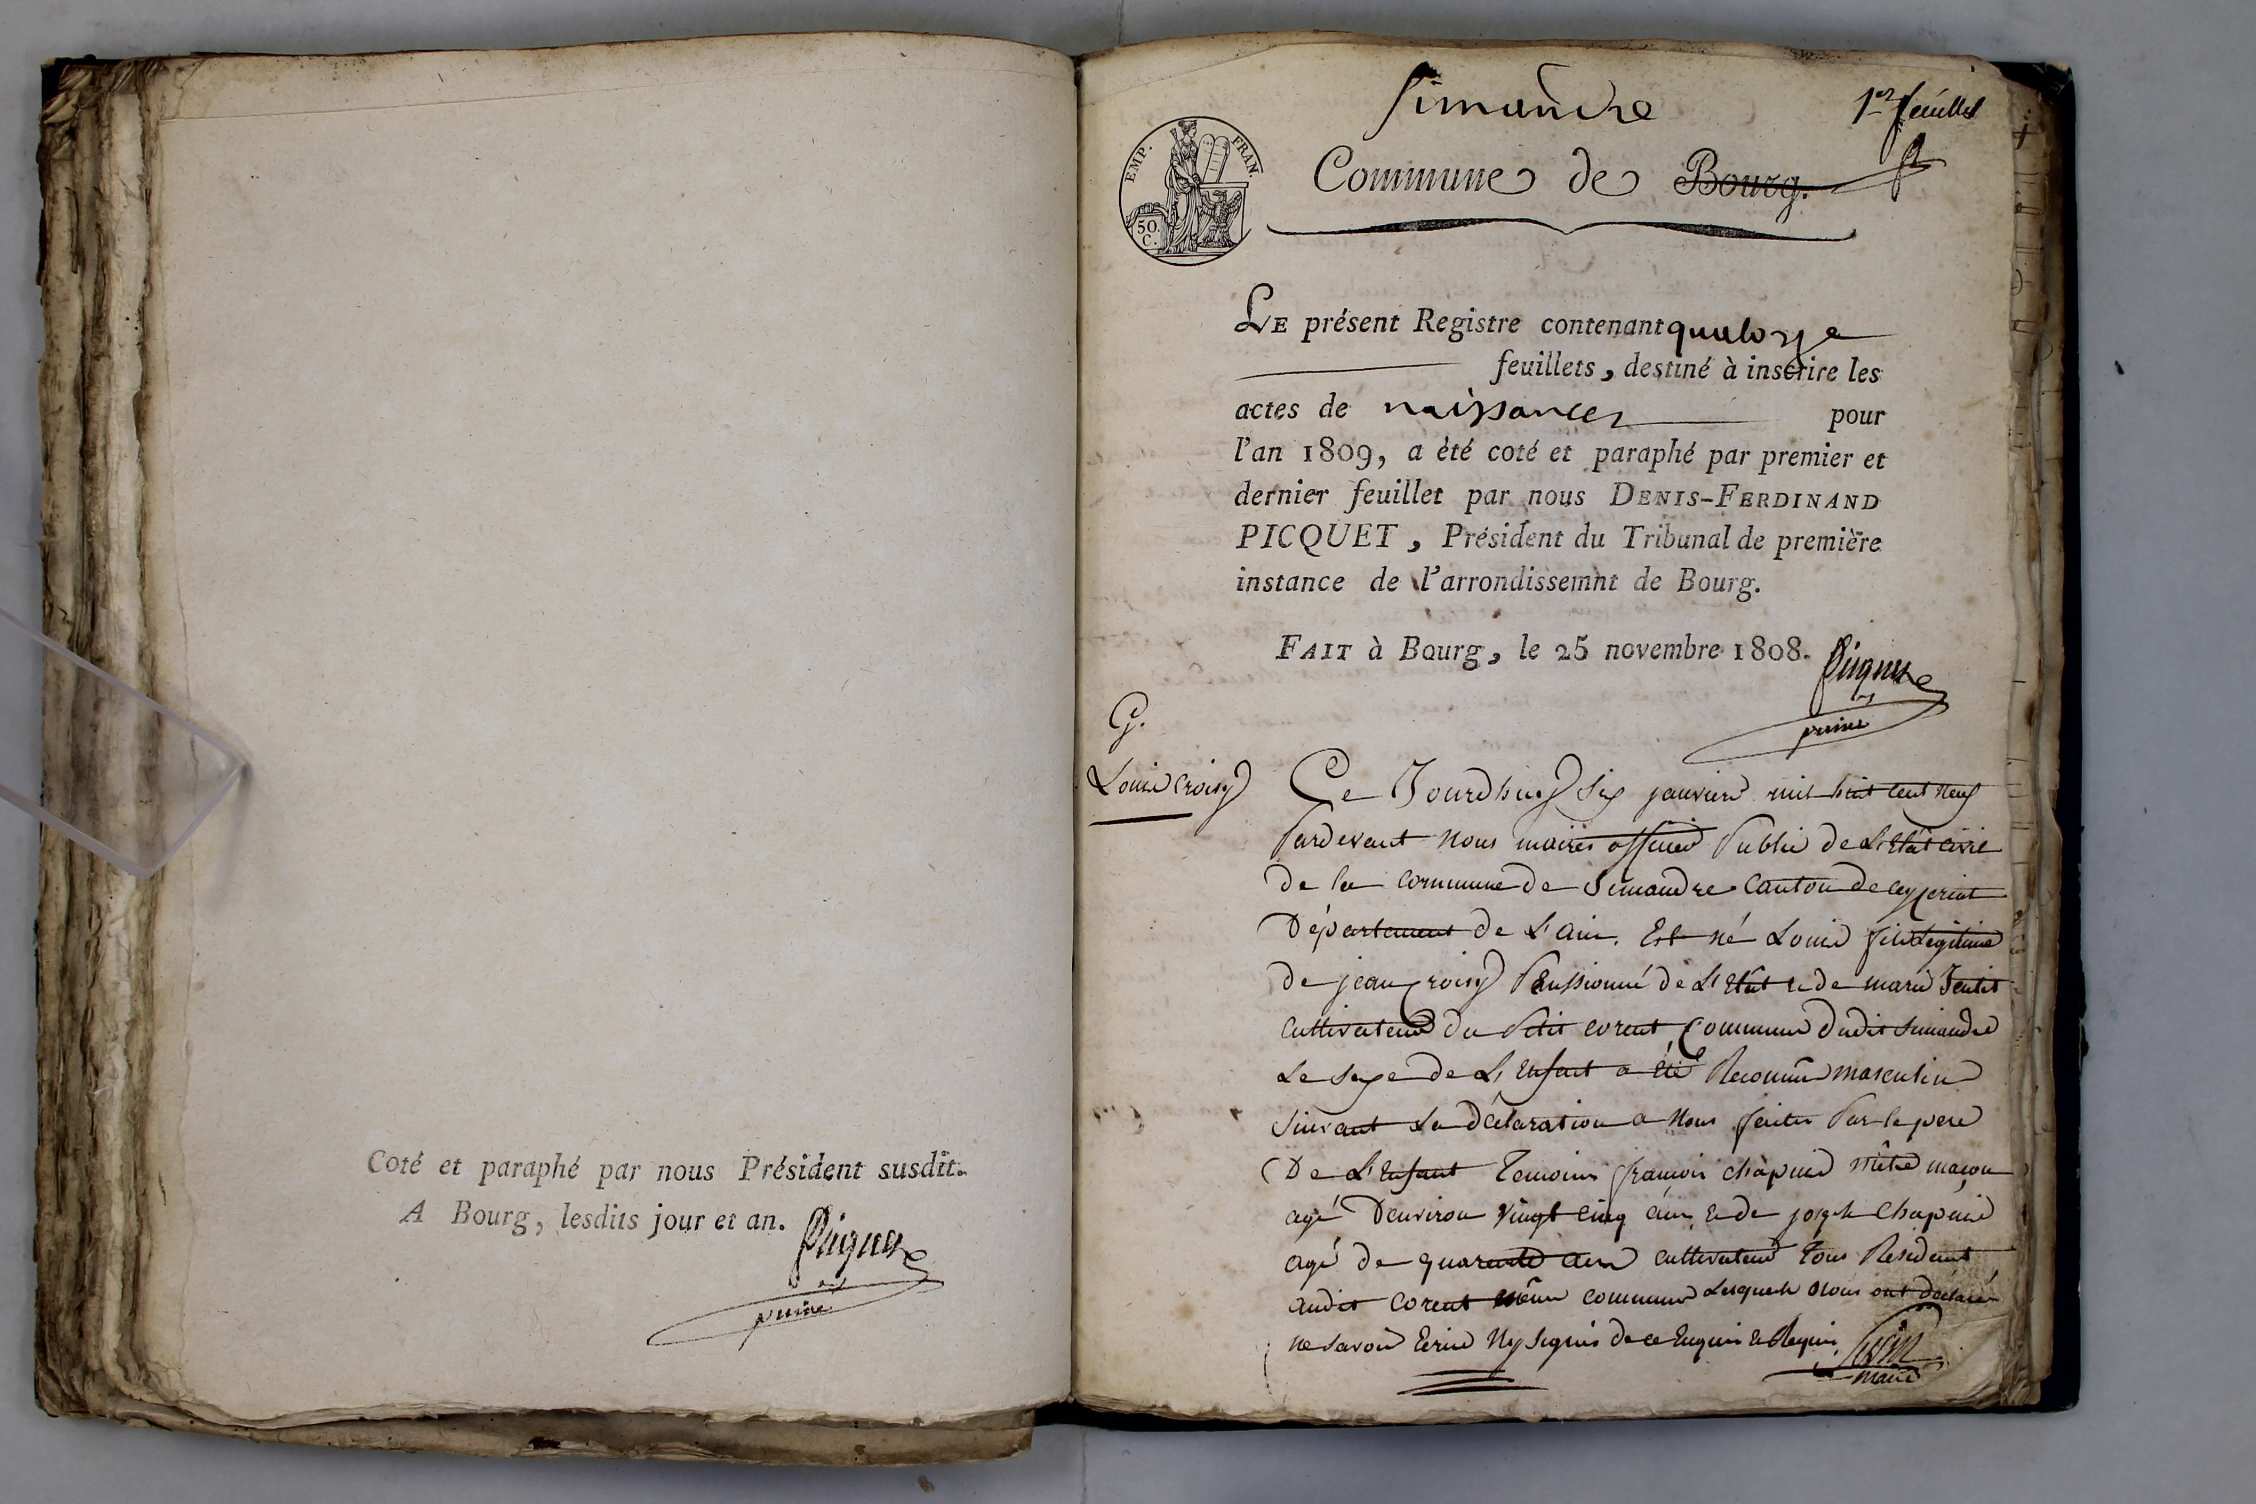 Coté et paraphé par nous Président susdit.
A Bourg, lesdits jour et an.
Picquet
Simandre
1er feuillet
EMP. FRAN.
50. C.
Commune de Bourg.
LE présent Registre contenant quatorze
feuillets, destiné à inscrire les
actes de naissances pour
l'an 1809, a èté coté et paraphé par premier et
dernier feuillet par nous DENIS-FERDINAND
PICQUET, Président du Tribunal de première
instance de l'arrondissemnt de Bourg.
FAIT à Bourg, le 25 novembre 1808.
Picquet
G.
Louis Croisy
Ce Jourdhuy six janvier mil huit cent neuf
Pardevant Nous maire officier Public de L'Etat civil
de la commune de Simandre Canton de ceyzeriat
Département de L'ain. Est né Louis fils Legitime
de jean Croisy Penssionné de L'Etat et de marie
cultivateur du Petit corent Commune dudit Simandre
Le sexe de L'Enfant a été Reconnu masculin
Suivant La déclaration a Nous faite Par le pere
De L'Enfant Temoins françois chapuis mêtre maçon
agé Denviron vingt cinq ans et de joseph Chapuis
agé de quarante ans cultivateur tous Residant
audit corent même commune Lesquels Nous ont déclaré
ne savoir Ecrire Ny signés de ce Enquis et Requis
maire